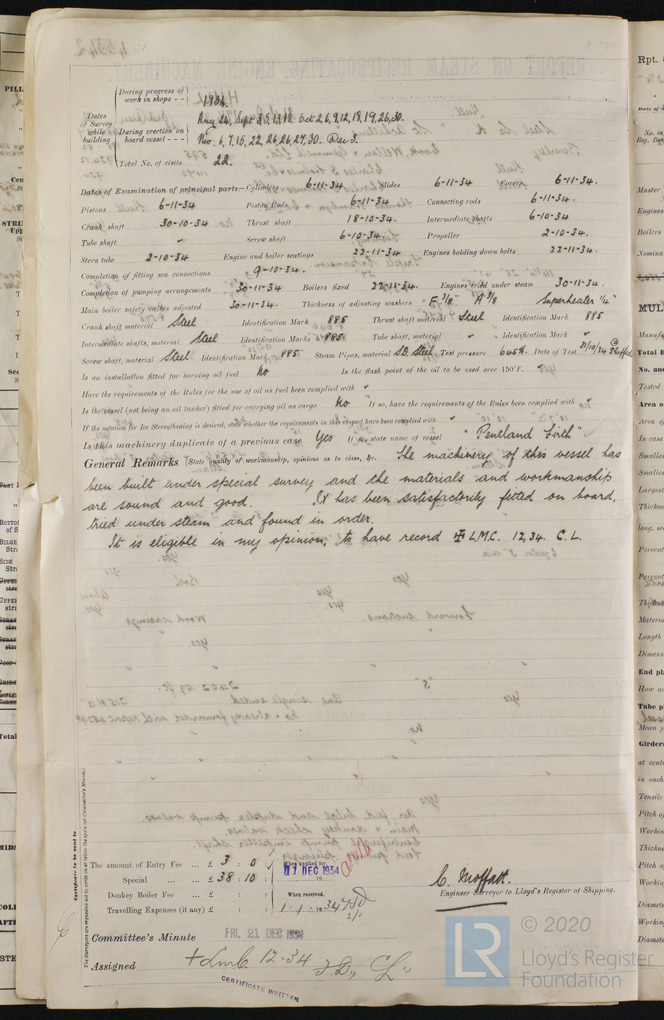 During progress of work in shops - - 1934.
Aug 24, Sept 3,5,13,18 Oct 2,6,9,12,18,19,26,30.
Dates of Survey while building
During erection on board vessel - - - Nov. 6,7,15,22,26,26,27,30. Dec 3.
Total No. of visits 22.
Dates of Examination of principal parts—Cylinders 6-11-34 Slides 6-11-34 Covers 6-11-34.
Pistons 6-11-34 Piston Rods 6-11-34 Connecting rods 6-11-34.
Crank shaft 30-10-34 Thrust shaft 18-10-34 Intermediate shafts 6-10-34
Tube shaft " Screw shaft 6-10-34 Propeller 2-10-34
Stern tube 2-10-34 Engine and boiler seatings 22-11-34 Engines holding down bolts 22-11-34.
Completion of fitting sea connections 9-10-34.
Completion of pumping arrangements 30-11-34 Boilers fixed 22-11-34. Engines tried under steam 30-11-34
Main boiler safety valves adjusted 30-11-34. Thickness of adjusting washers F 3/8 A 3/8 Superheater 1/2"
Crank shaft material Steel Identification Mark 885 Thrust shaft material Steel Identification Mark 885
Intermediate shafts, material Steel Identification Marks 885 Tube shaft, material " Identification Mark "
Screw shaft, material Steel Identification Mark 885 Steam Pipes, material S.D. Steel Test pressure 645 lb. Date of Test 31/10/34
Is an installation fitted for burning oil fuel no Is the flash point of the oil to be used over 150°F. "
Have the requirements of the Rules for the use of oil as fuel been complied with "
Is the vessel (not being an oil tanker) fitted for carrying oil as cargo No If so, have the requirements of the Rules been complied with "
If the notation for Ice Strengthening is desired, state whether the requirements in this respect have been complied with "
Is this machinery duplicate of a previous case Yes If so, state name of vessel "Pentland Firth"
General Remarks (State quality of workmanship, opinions as to class, &c. The machinery of this vessel has
been built under special survey and the materials and workmanship
are sound and good. It has been satisfactorily fitted on board,
tried under steam and found in order.
It is eligible in my opinion, to have record ✠ L.M.C. 12,34. C.L.
Certificate to be sent to
The amount of Entry Fee ... £ 3 : 0 :
Special ... £ 38 : 10 :
Donkey Boiler Fee ... £ : :
Travelling Expenses (if any) £ : :
When applied for,
11 DEC 1934
When received,
1-1-1934
C. Moffatt.
Engineer Surveyor to Lloyd's Register of Shipping.
Committee's Minute FRI. 21 DEC 1934
Assigned + Lmc. 12.34 F.D., C.L.
CERTIFICATE WRITTEN
LR
© 2020
Lloyd's Register
Foundation
Rpt.
MUL